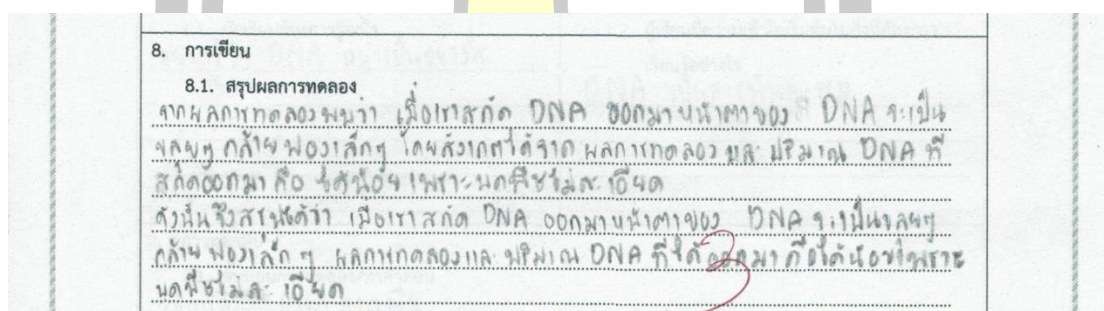 8. การเขียน
8.1. สรุปผลการทดลอง
จากผลการทดลองพบว่า เมื่อเราสกัด DNA ออกมาหน้าตาของ DNA จะเป็น
ขลุยๆ คล้ายฟองเล็กๆ โดยสังเกตได้จาก ผลการทดลอง และ ปริมาณ DNA ที่
สกัดออกมา คือ ได้น้อย เพราะบดพืชไม่ละเอียด
ดังนั้นจึงสรุปได้ว่า เมื่อเราสกัด DNA ออกมาหน้าตาของ DNA จะเป็นขลุยๆ
คล้ายฟองเล็ก ๆ ผลการทดลองและ ปริมาณ DNA ที่ได้ออกมา คือได้น้อยเพราะ
บดพืชไม่ละเอียด